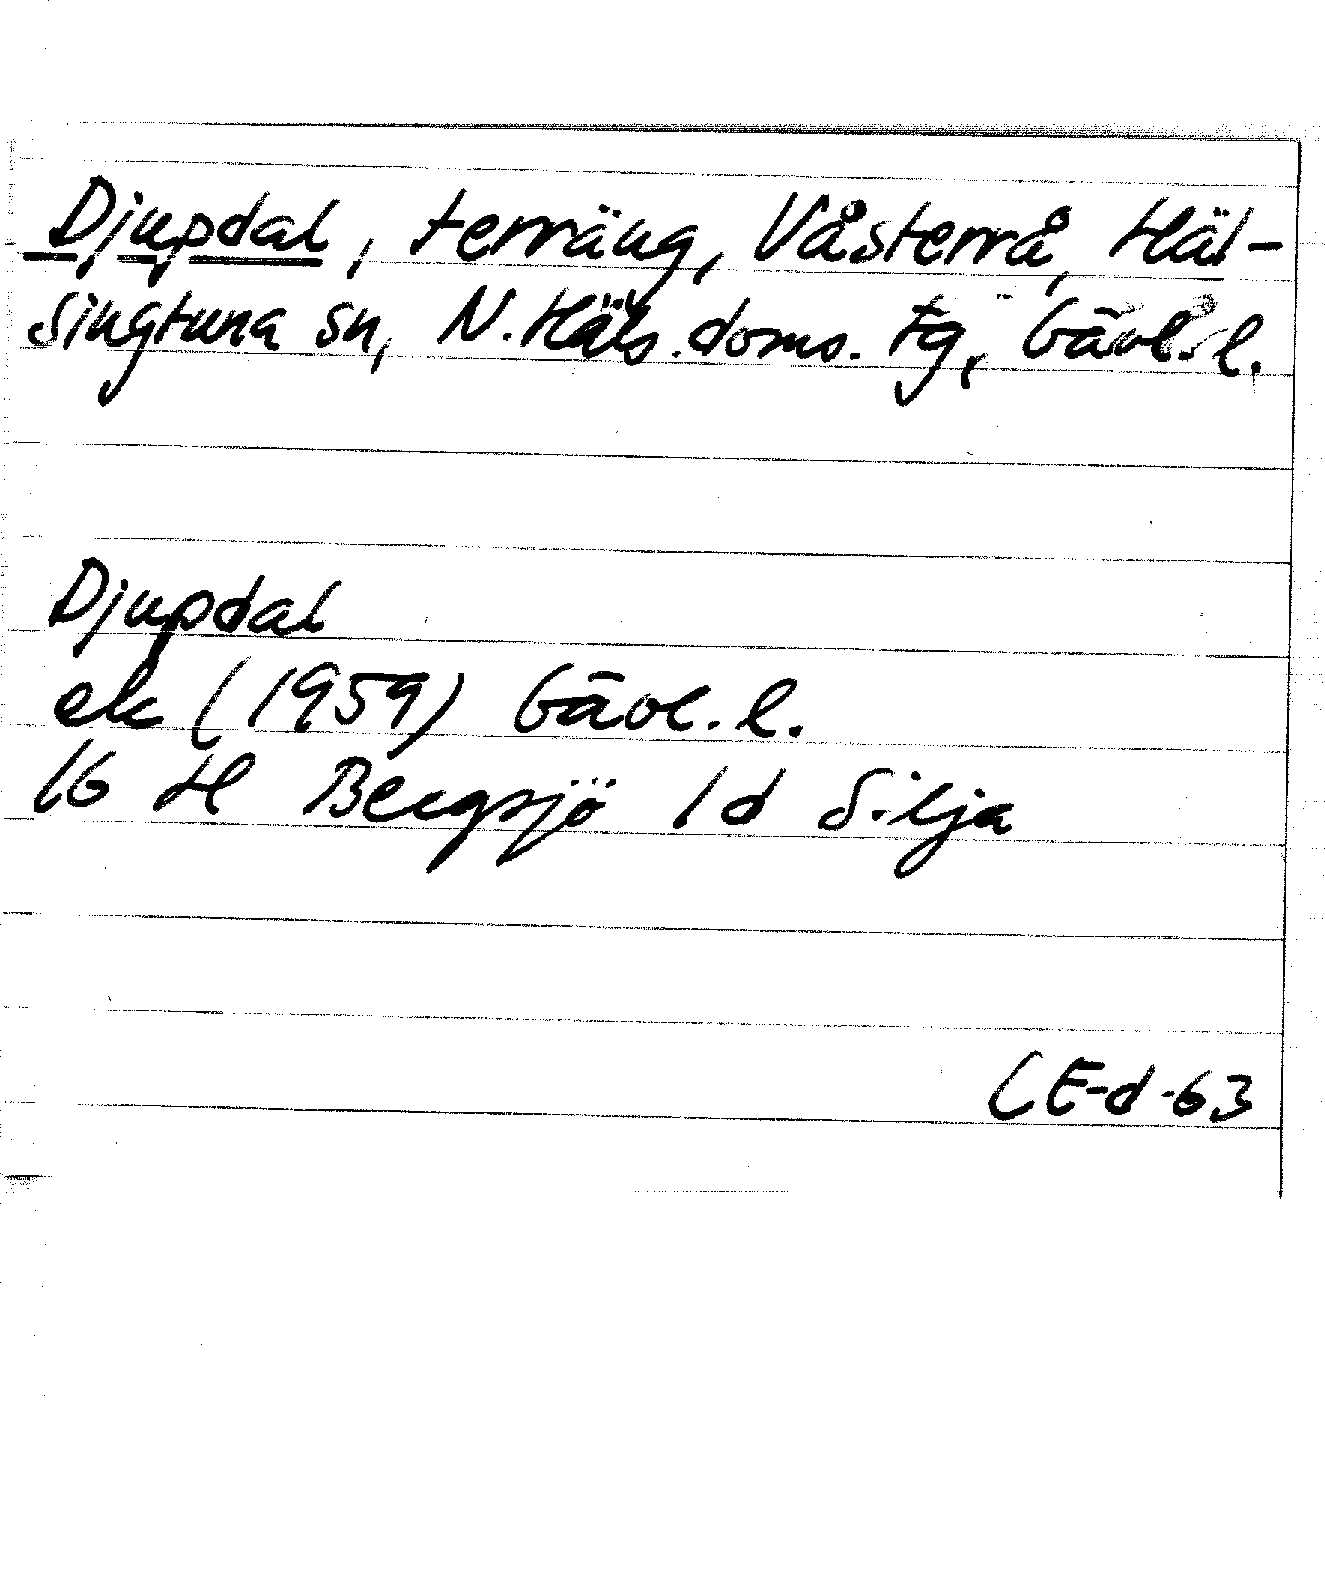 Djupdal, terräng, Våsterrå, Häl-
singtuna sn, N. Häls. doms. tg, Gävl. l.
Djupdal
ek (1959) Gävl. l.
16 H Bergsjö 1d Silja
CE-d-63